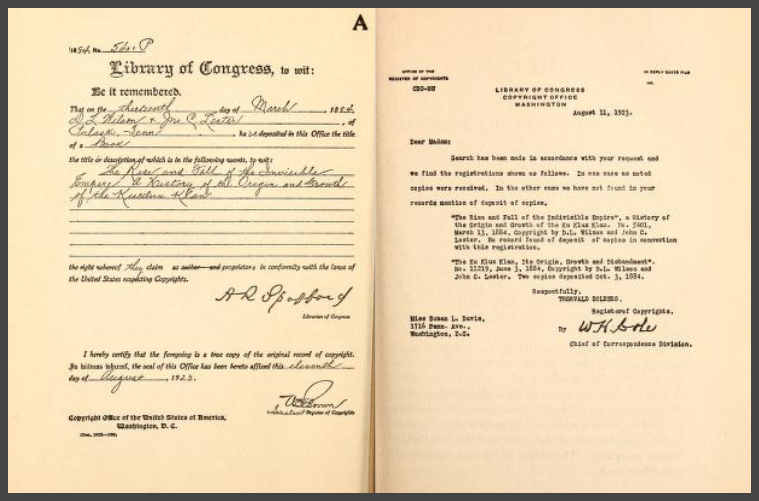 A
1884, No. 5401 P
Library of Congress, to wit:
Be it remembered,
That on the thirteenth day of March, 1884
D L Wilson & Jno C Lester, of
Pulaski, Tenn, have deposited in this Office the title
of a Book
the title or description of which is in the following words, to wit:
The Rise and Fall of the Invisible
Empire. A History of the Origin and Growth
of the Kuklux Klan
the right whereof they claim as author and proprietors in conformity with the laws of
the United States respecting Copyrights.
A R Spofford
Librarian of Congress
I hereby certify that the foregoing is a true copy of the original record of copyright.
In witness whereof, the seal of this Office has been hereto affixed this eleventh
day of August, 1923.
Register of Copyrights
Copyright Office of the United States of America,
Washington, D. C.
OFFICE OF THE
REGISTER OF COPYRIGHTS
IN REPLY QUOTE FILE
NO.
LIBRARY OF CONGRESS
COPYRIGHT OFFICE
WASHINGTON
August 11, 1923.
Dear Madam:
Search has been made in accordance with your request and
we find the registrations shown as follows. In one case as noted
copies were received. In the other case we have not found in your
records mention of deposit of copies.
"The Rise and Fall of the Indivisible Empire", a History of
the Origin and Growth of the Ku Klux Klan. No. 5401,
March 13, 1884, Copyright by D.L. Wilson and John C.
Lester. No record found of deposit of copies in connection
with this registration.
"The Ku Klux Klan, Its Origin, Growth and Disbandment".
No. 11219, June 3, 1884, Copyright by D.L. Wilson and
John C. Lester. Two copies deposited Oct. 3, 1884.
Respectfully,
THORVALD SOLBERG,
Register of Copyrights.
Miss Susan L. Davis,
1716 Penn. Ave.,
Washington, D.C.
By
Chief of Correspondence Division.